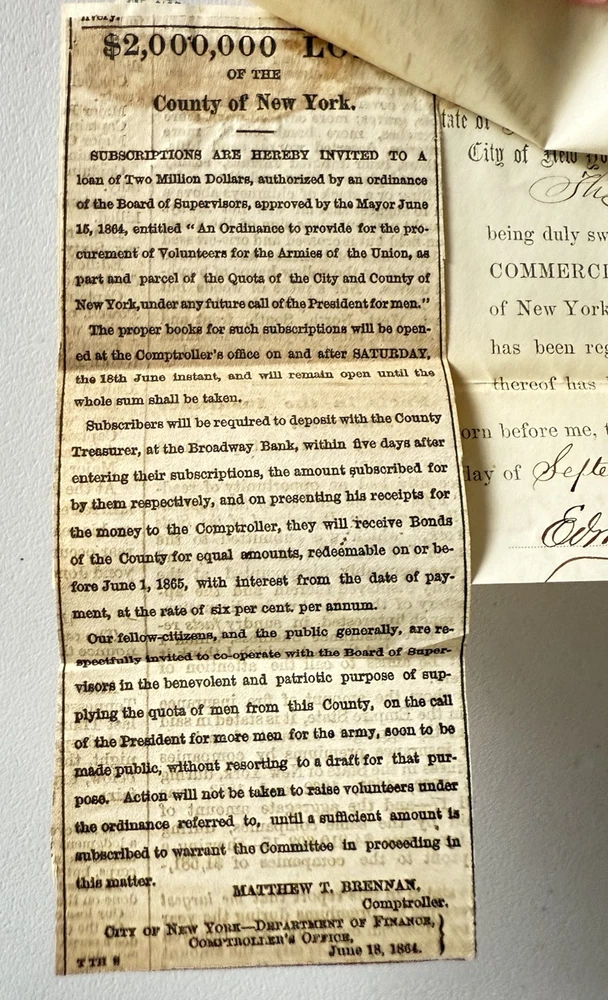 $2,000,000
OF THE
County of New York.
SUBSCRIPTIONS ARE HEREBY INVITED TO A
loan of Two Million Dollars, authorized by an ordinance
of the Board of Supervisors, approved by the Mayor June
15, 1864, entitled “An Ordinance to provide for the pro-
curement of Volunteers for the Armies of the Union, as
part and parcel of the Quota of the City and County of
New York, under any future call of the President for men.”
The proper books for such subscriptions will be open-
ed at the Comptroller's office on and after SATURDAY,
the 18th June instant, and will remain open until the
whole sum shall be taken.
Subscribers will be required to deposit with the County
Treasurer, at the Broadway Bank, within five days after
entering their subscriptions, the amount subscribed for
by them respectively, and on presenting his receipts for
the money to the Comptroller, they will receive Bonds
of the County for equal amounts, redeemable on or be-
fore June 1, 1865, with interest from the date of pay-
ment, at the rate of six per cent. per annum.
Our fellow-citizens, and the public generally, are re-
spectfully invited to co-operate with the Board of Super-
visors in the benevolent and patriotic purpose of sup-
plying the quota of men from this County, on the call
of the President for more men for the army, soon to be
made public, without resorting to a draft for that pur-
pose. Action will not be taken to raise volunteers under
the ordinance referred to, until a sufficient amount is
subscribed to warrant the Committee in proceeding in
this matter.
MATTHEW T. BRENNAN,
Comptroller.
CITY OF NEW YORK—DEPARTMENT OF FINANCE,
COMPTROLLER'S OFFICE,
June 18, 1864.
tate of
City of New
being duly sw
COMMERCI
of New York
has been reg
thereof has
orn before me,
day of Septe
Edm